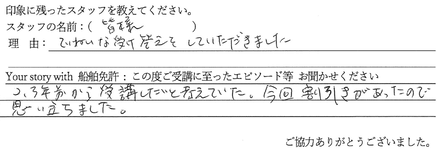 印象に残ったスタッフを教えてください。
スタッフの名前：（ 皆様 ）
理 由： ていねいな受け答えをしていただきました
Your story with 船舶免許：この度ご受講に至ったエピソード等 お聞かせください
2、3年前から受講したいと考えていた。今回割引きがあったので
思い立ちました。
ご協力ありがとうございました。